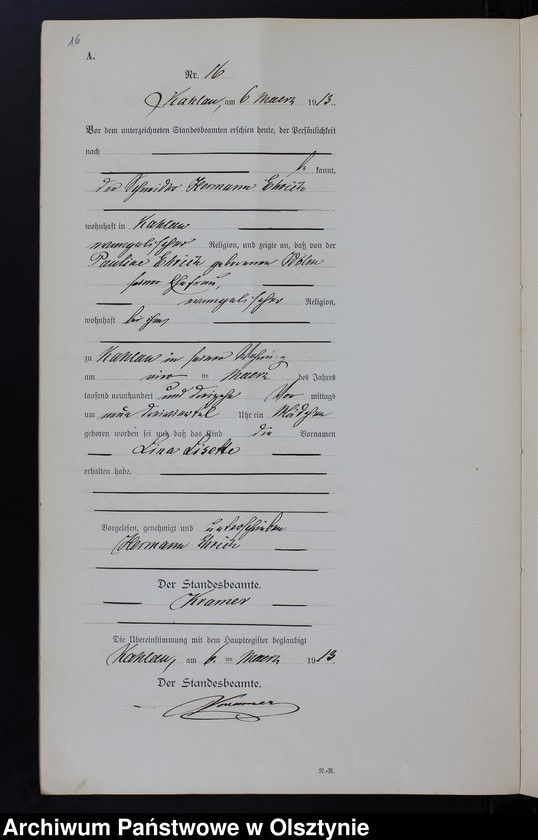 16
A.
Nr. 16
Kahlau, am 6. Maerz 1913.
Vor dem unterzeichneten Standesbeamten erschien heute, der Persönlichkeit
nach
be kannt,
der Schneider Hermann Ehrich
wohnhaft in Kahlau
evangelischer Religion, und zeigte an, daß von der
Pauline Ehrich geborenen
seiner Ehefrau,
evangelischer Religion,
wohnhaft bei ihm,
zu Kahlau in seiner Wohnung
am vier ten Maerz des Jahres
tausend neunhundert und dreizehn Vor mittags
um neun dreiviertel Uhr ein Mädchen
geboren worden sei und daß das Kind die Vornamen
Lina Lisette
erhalten habe.
Vorgelesen, genehmigt und unterschrieben
Hermann Ehrich
Der Standesbeamte.
Kramer
Die Übereinstimmung mit dem Hauptregister beglaubigt
Kahlau, am 6. ten Maerz 1913.
Der Standesbeamte.
Kramer
N.-R.
Archiwum Państwowe w Olsztynie